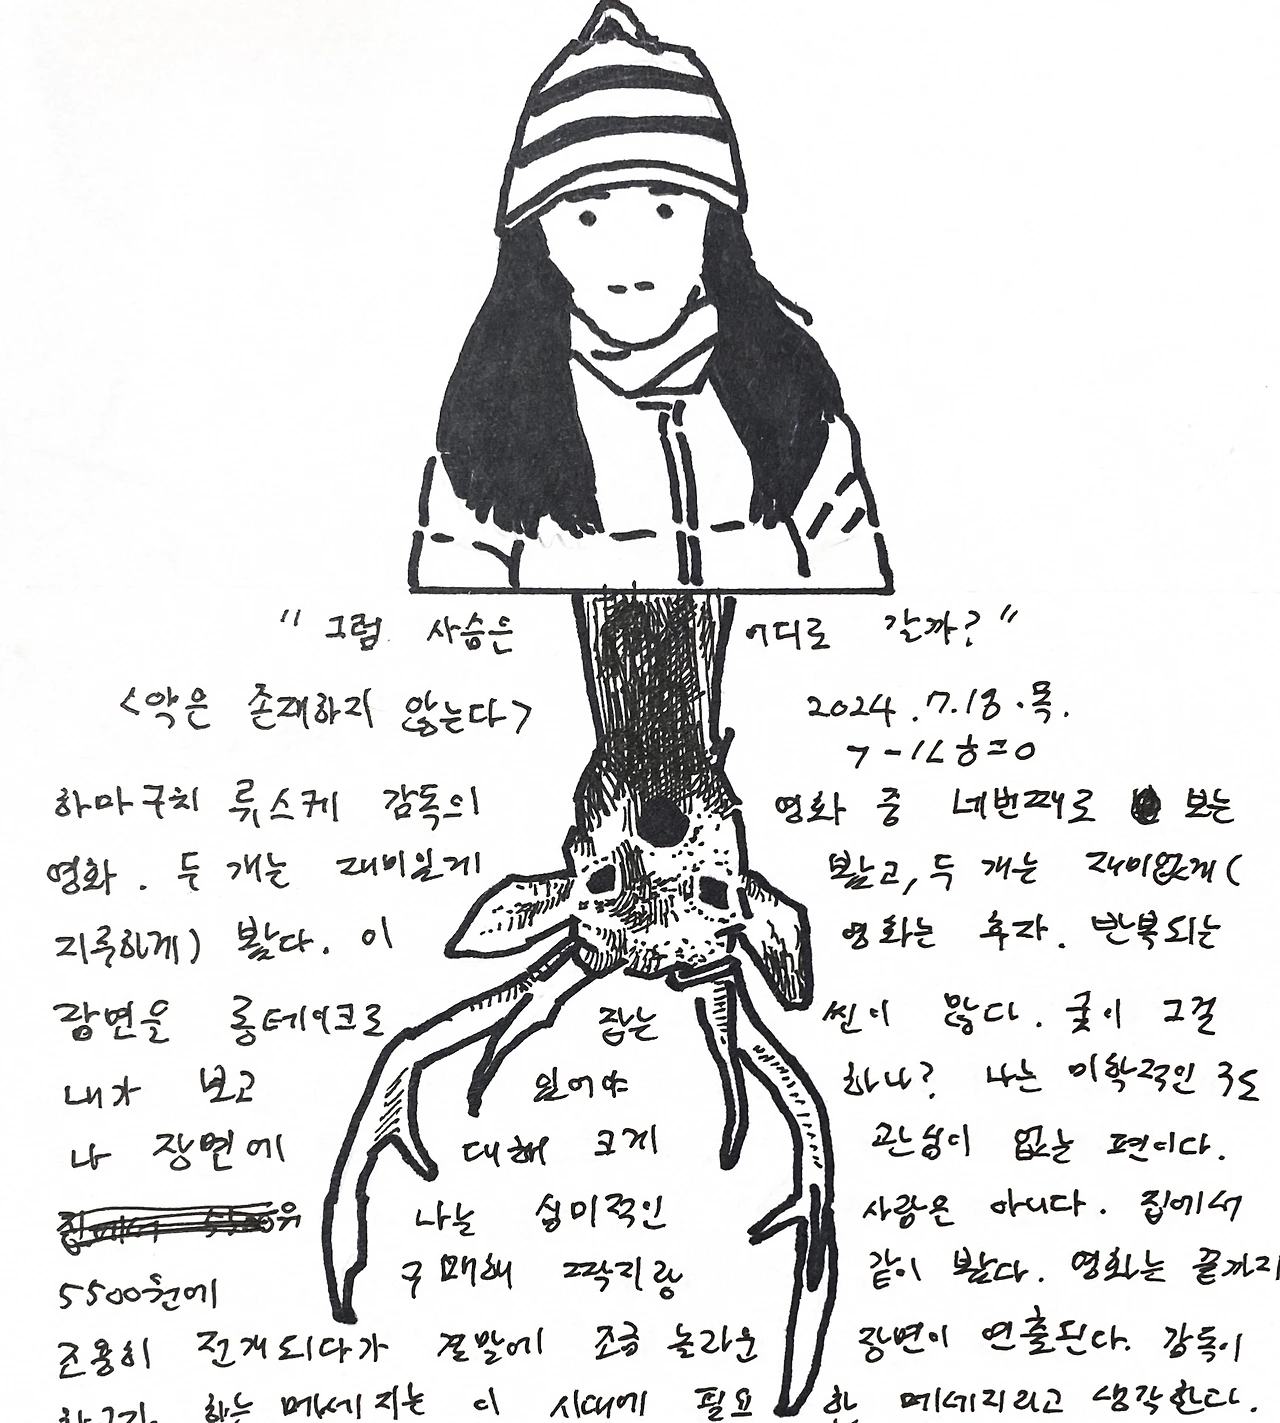 "그럼 사슴은 어디로 갈까?"
<악은 존재하지 않는다> 2024.7.18.목.
하마구치 류스케 감독의 영화 중 네번째로 보는
영화. 두 개는 재미있게 봤고, 두 개는 재미없게(
지루하게) 봤다. 이 영화는 후자. 반복되는
장면을 롱테이크로 잡는 씬이 많다. 굳이 그걸
내가 보고 있어야 하나? 나는 미학적인 구도
나 장면에 대해 크게 관심이 없는 편이다.
나는 심미적인 사람은 아니다. 집에서
5500원에 구매해 짝지랑 같이 봤다. 영화는 끝까지
조용히 전개되다가 결말에 조금 놀라운 장면이 연출된다. 감독이
하는 메세지는 이 시대에 필요한 메세지라고 생각한다.